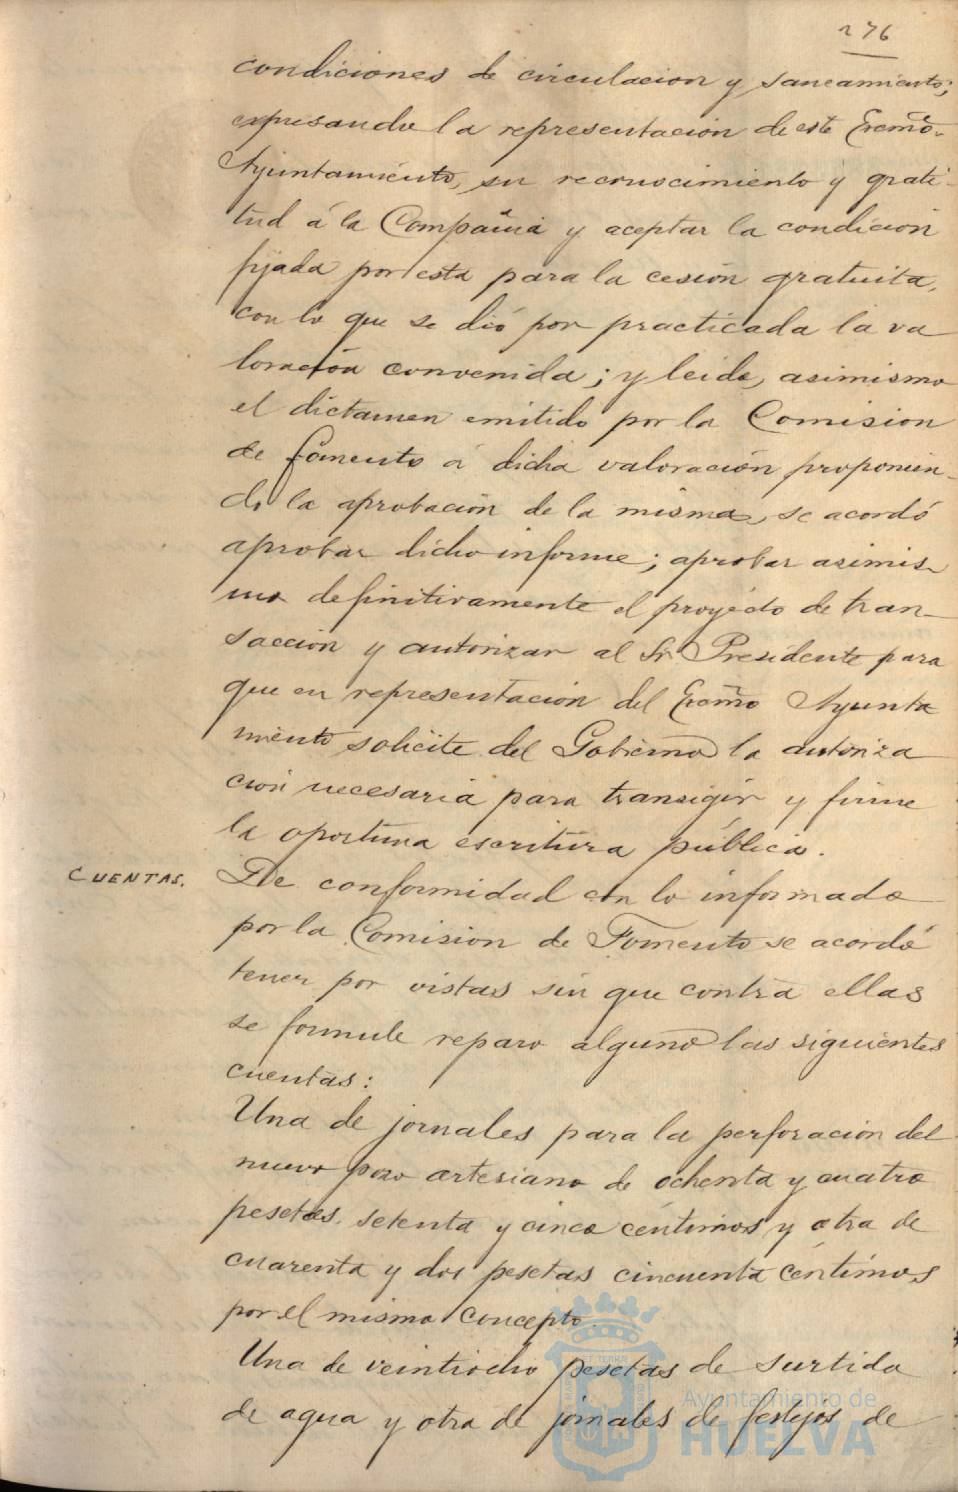 276
condiciones de circulacion y saneamiento;
expresando la representación de este Excmo.
Ayuntamiento, su reconocimiento y grati-
tud á la Compañia y aceptar la condicion
fijada por esta para la cesión gratuita,
con lo que se dió por practicada la va
loración convenida; y leido, asimismo
el dictamen emitido por la Comision
de fomento á dicha valoración proponien-
do la aprobación de la misma, se acordó
aprobar dicho informe; aprobar asimis-
mo definitivamente el proyécto de tran-
sacción y autorizar al Sr. Presidente para
que en representación del Excmo Ayunta
miento solicite del Gobierno la autoriza
cion necesaria para transigir y firme
la oportuna escritura pública.
CUENTAS.
De conformidad con lo informado
por la Comision de Fomento se acordó
tener por vistas sin que contra ellas
se formule reparo alguno las siguientes
cuentas:
Una de jornales para la perforación del
nuevo pozo artesiano de ochenta y cuatro
pesetas, setenta y cinco céntimos y otra de
cuarenta y dos pesetas cincuenta céntimos
por el mismo concepto.
Una de veintiocho pesetas de surtido
de agua y otra de jornales de festejos de
Ayuntamiento de
HUELVA